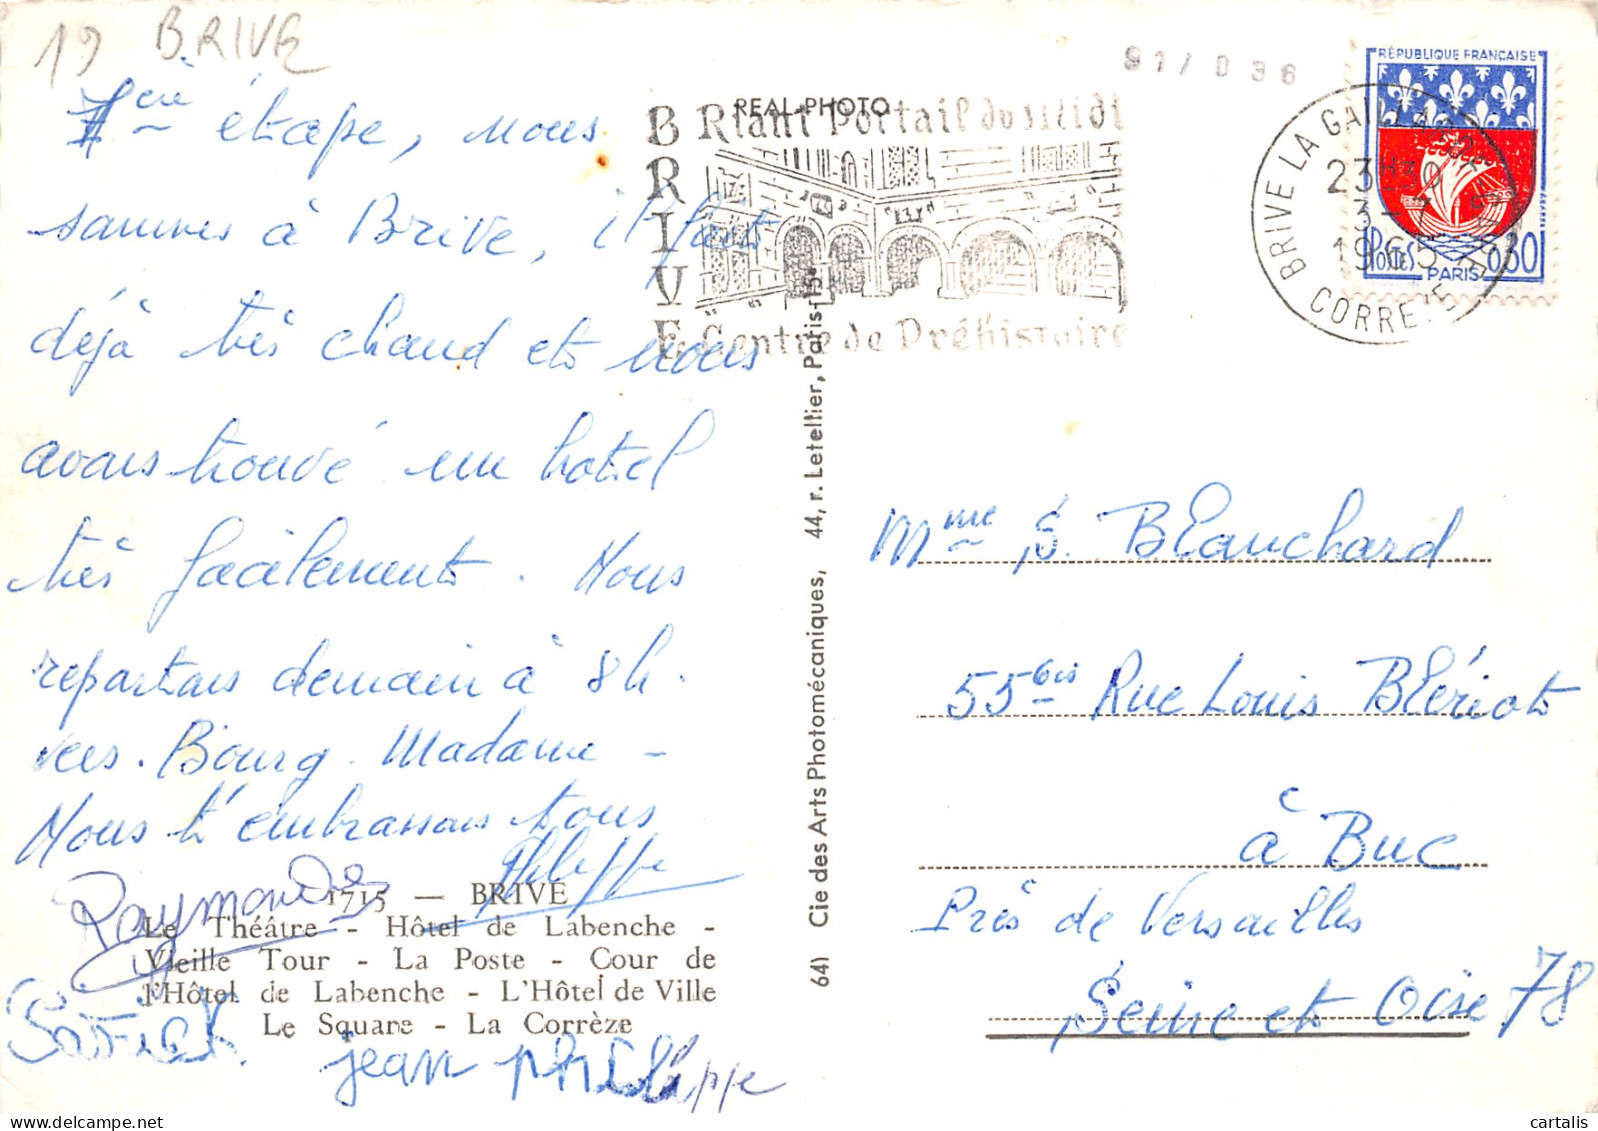 19 BRIVE
1ère étape, nous
sommes à Brive, il fait
déjà très chaud et nous
avons trouvé un hotel
très facilement. Nous
repartons demain à 8h.
vers. Bourg. Madame -
Nous t'embrassons tous
Philippe
Raymonde
Patrick
jean philippe
1715 — BRIVE
Le Théâtre - Hôtel de Labenche -
Vieille Tour - La Poste - Cour de
l'Hôtel de Labenche - L'Hôtel de Ville
Le Square - La Corrèze
REAL-PHOTO
BRIVE
Riant Portail du Midi
Centre de Préhistoire
64) Cie des Arts Photomécaniques, 44, r. Letellier, Paris-15e
917036
BRIVE LA GAILLARDE
23H30
3-7
1965
CORREZE
RÉPUBLIQUE FRANÇAISE
POSTES PARIS 0,30
Mme S. Blanchard
55bis Rue Louis Blériot
à Buc
Près de Versailles
Seine et Oise 78
cartalis